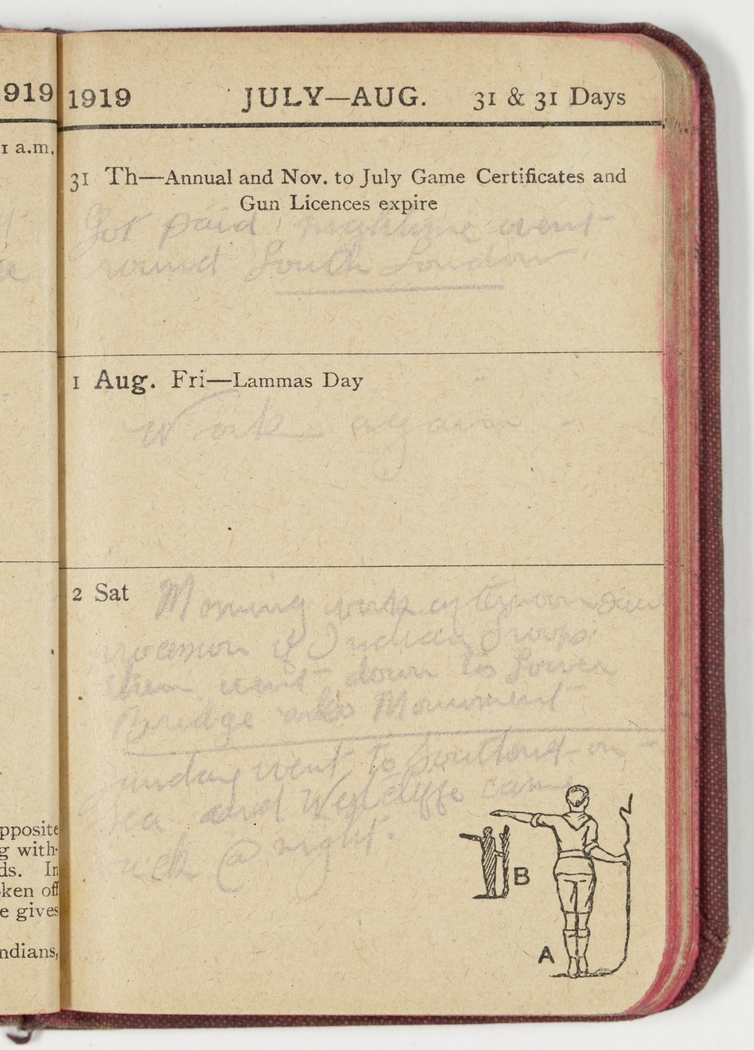 919
1 a.m.
pposite
g with-
ds. In
ken off
e gives
ndians,
1919 JULY—AUG. 31 & 31 Days
31 Th—Annual and Nov. to July Game Certificates and
Gun Licences expire
Got paid. nightime went
round South London.
1 Aug. Fri—Lammas Day
Work again.
2 Sat Morning work afternoon saw
procession of Indian Troops.
then went down to Tower
Bridge also Monument
Sunday went to Southend-on-
Sea and Westcliffe came
back @ night.
B
A